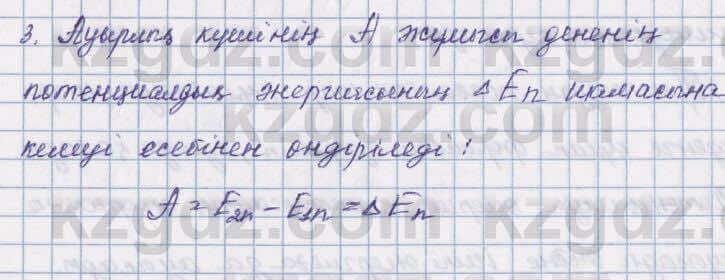 3. Ауырлық күшінің A жұмысы дененің
потенциалдық энергиясының ΔEп шамасына
кемуі есебінен өндіріледі:
A = E₂п - E₁п = ΔEп